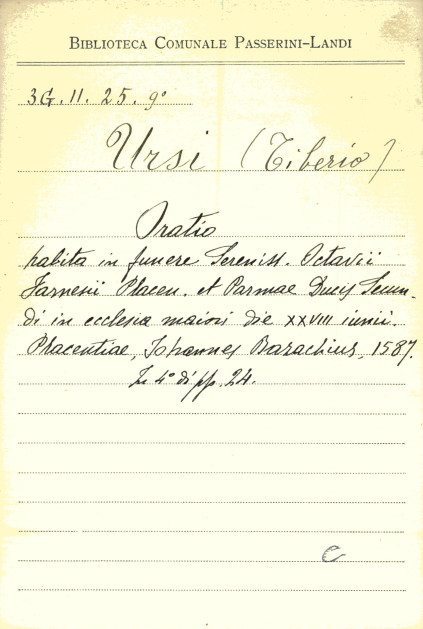 BIBLIOTECA COMUNALE PASSERINI-LANDI
3G. 11. 25. 9º
Ursi (Tiberio)
Oratio
habita in funere Sereniss. Octavii
Farnesii Placen. et Parmae Ducis Secun-
di in ecclesia maiori die XXVIII iunii.
Placentiae, Johannes Bazachius, 1587.
In 4º di pp. 24.
e